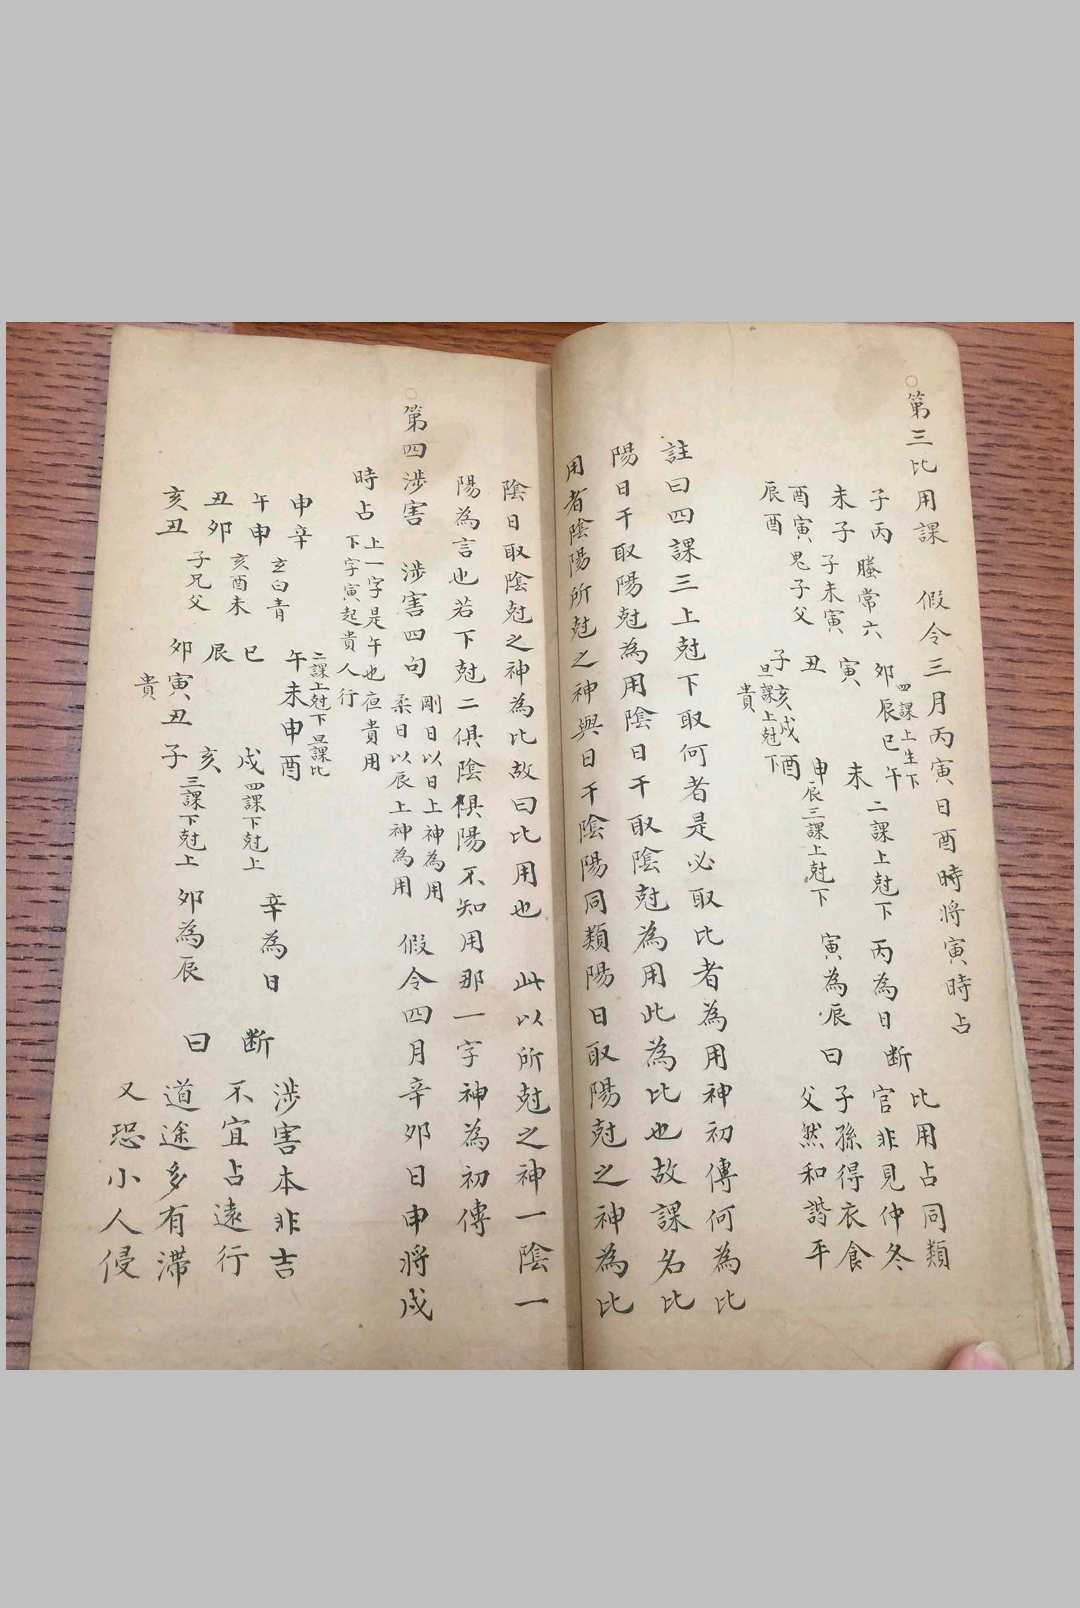 第三比用課　假令三月丙寅日酉時將寅時占
子丙　螣常六　卯辰巳午　二課上尅下　丙為日　断　比用占同類
未子　子未寅　寅　四課上生下　未　官非見仲冬
酉寅　鬼子父　丑　申　辰三課上尅下　寅為辰　曰　子孫得衣食
辰酉　子亥戌酉　旦課上尅下　父然和諧平
貴
註曰四課三上尅下取何者是必取比者為用神初傳何為比
陽日干取陽尅為用陰日干取陰尅為用此為比也故課名比
用者陰陽所尅之神與日干陰陽同類陽日取陽尅之神為比
陰日取陰尅之神為比故曰比用也　此以所尅之神一陰一
陽為言也若下尅二俱陰俱陽不知用那一字神為初傳
第四涉害　涉害四句　剛日以日上神為用　柔日以辰上神為用　假令四月辛卯日申將戌
時占　上一字是午也夜貴用　下字寅起貴人行
申辛　玄白青　午未申酉　二課上尅下　旦課比　辛為日　断　涉害本非吉
午申　亥酉未　巳　戌　四課下尅上　不宜占遠行
丑卯　子兄父　辰　亥　三課下尅上　卯為辰　曰　道途多有滞
亥丑　卯寅丑子　又恐小人侵
貴